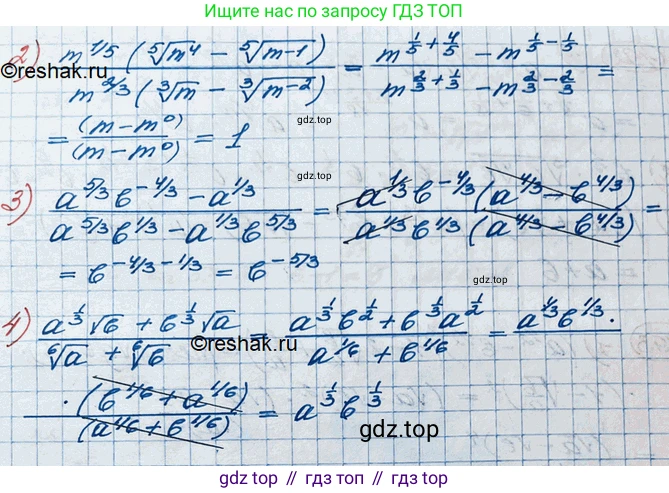 Ищите нас по запросу ГДЗ ТОП
2) m^{1/5} (⁵√m⁴ − ⁵√m−1) / m^{2/3} (³√m − ³√m−2) = m^{1/5+4/5} − m^{1/5−1/5} / m^{2/3+1/3} − m^{2/3−2/3} =
©reshak.ru
= (m−m⁰) / (m−m⁰) = 1
gdz.top
3) a^{5/3} b^{-4/3} − a^{1/3} / a^{5/3} b^{1/3} − a^{1/3} b^{5/3} = a^{1/3} b^{-4/3} (a^{4/3} − b^{4/3}) / a^{1/3} b^{1/3} (a^{4/3} − b^{4/3}) =
= b^{-4/3−1/3} = b^{-5/3}
4) a^{1/3} √b + b^{1/3} √a / ⁶√a + ⁶√b = a^{1/3} b^{1/2} + b^{1/3} a^{1/2} / a^{1/6} + b^{1/6} = a^{1/3} b^{1/3} ·
©reshak.ru
· (b^{1/6} + a^{1/6}) / (a^{1/6} + b^{1/6}) = a^{1/3} b^{1/3}
gdz.top
gdz.top // гдз топ // gdz.top